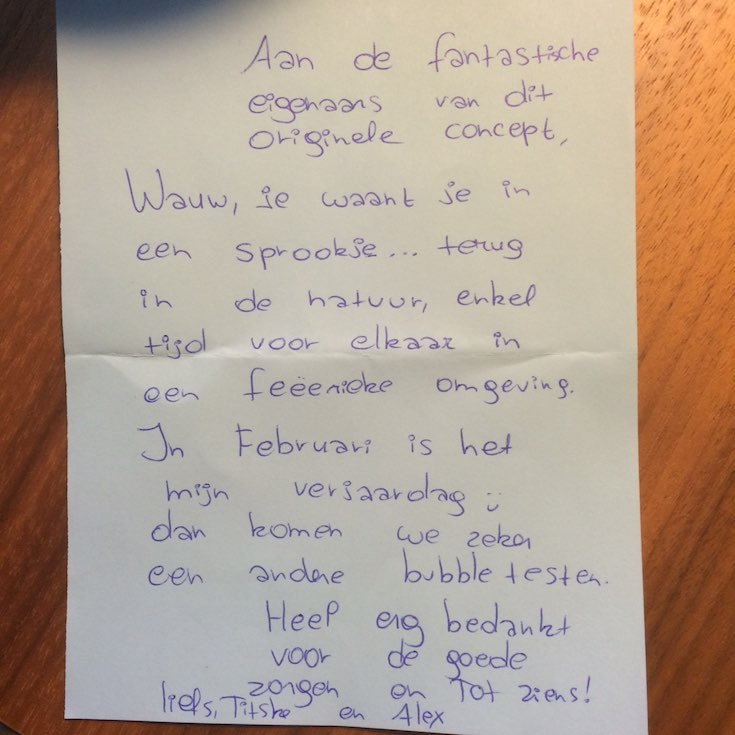 Aan de fantastische
eigenaars van dit
originele concept,
Wauw, je waant je in
een sprookje... terug
in de natuur, enkel
tijd voor elkaar in
een feeërieke omgeving.
In Februari is het
mijn verjaardag :)
dan komen we zeker
een andere bubble testen.
Heel erg bedankt
voor de goede
zorgen en Tot ziens!
liefs, Titske en Alex